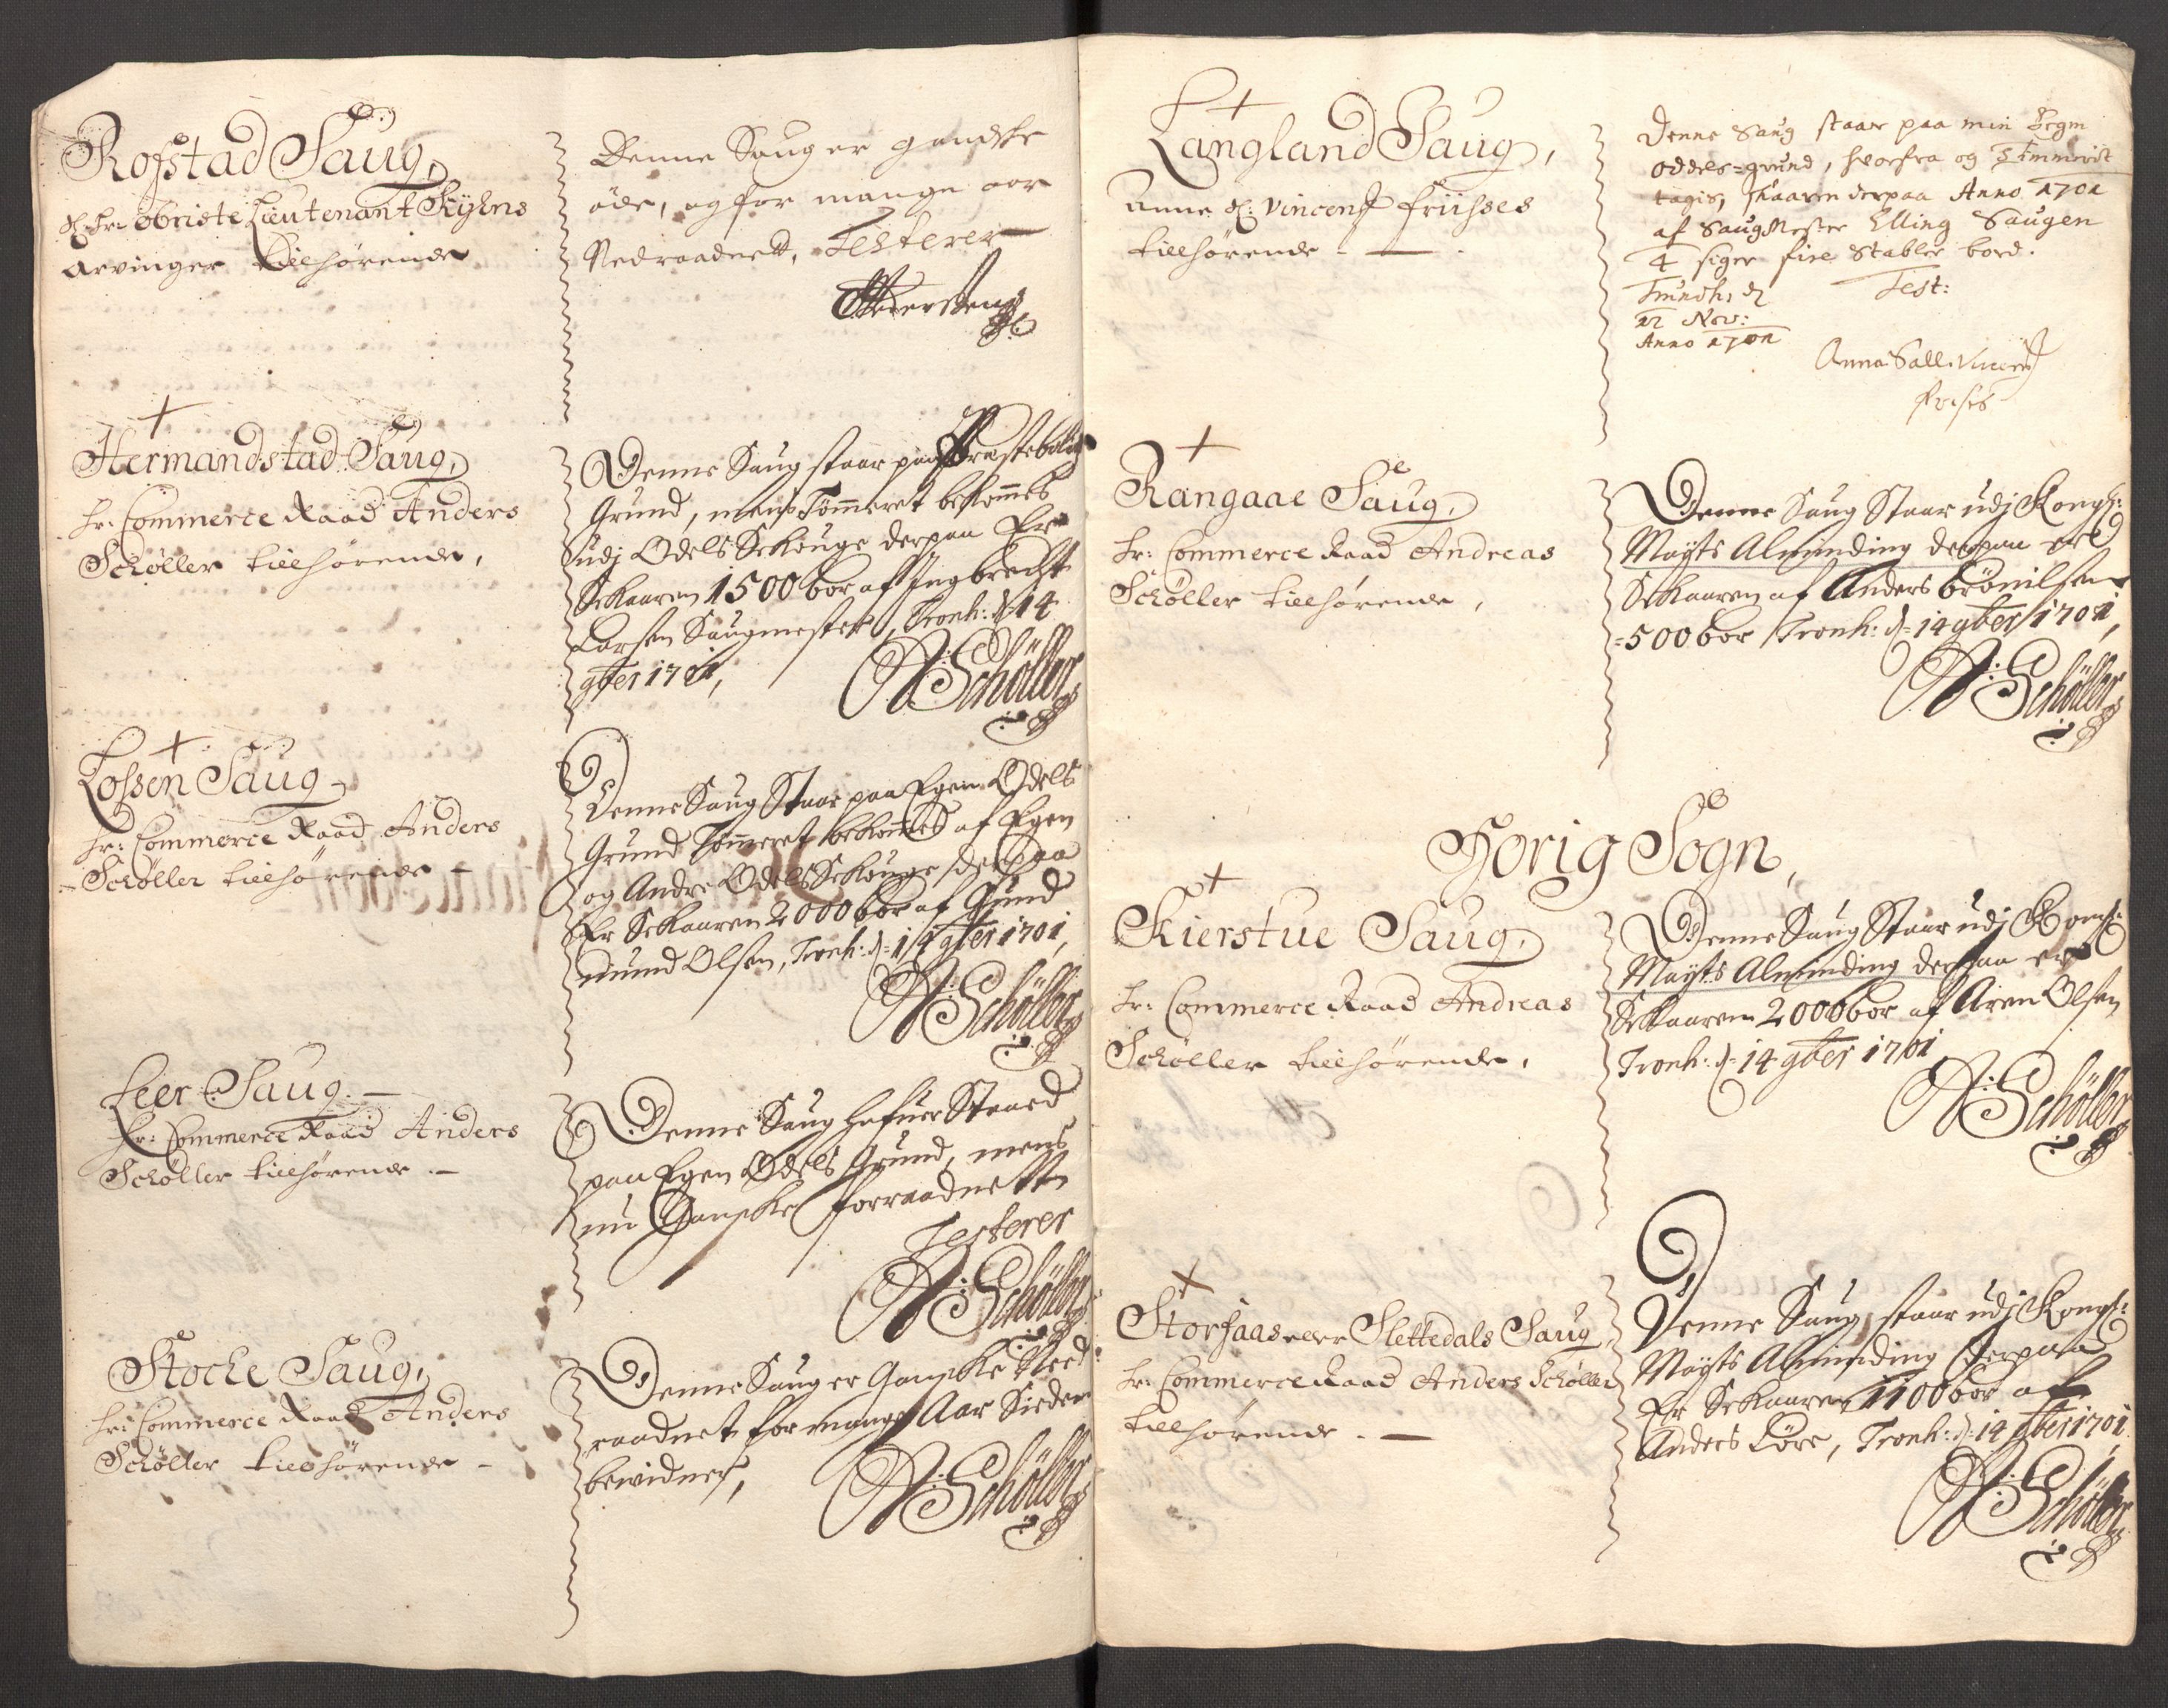 Rosstad Saug,
Sl. Hr: Obriste Lieutenant Kÿhns
Arvinger tilhørende
Denne Saug er gandske
øde, og for mange aar
Nedraadnett, Testerer

Hermandstad Saug,
Hr: Commerce Raad Anders
Schøller tilhørende,
Denne Saug staar paa Præstebolig
Grund, mens Tømmeret bekommes
udj Odels Skouge derpaa Er
Skaaren 1500 bor af Ingbrecht
Larsen Saugmester, Tronh: d: 14
9ber 1701,
A: Schøller

Lossen Saug
Hr: Commerce Raad Anders
Schøller tilhørende
Denne Saug Staar paa Egen Odels
Grund Tømmeret bekommes af Egen
og Andre Odels Skouge derpaa
Er Skaaren 2000 bor af Gund
mund Olsen, Tronh: d: 14 9ber 1701,
A: Schøller

Leer Saug.
Hr: Commerce Raad Anders
Schøller tilhørende
Denne Saug hafuer Staaed
paa Egen Odels Grund, mens
nu Ganske forraadnett
Testerer
A: Schøller

Stocke Saug,
Hr: Commerce Raad Anders
Schøller tilhørende
Denne Saug er Ganske Need
raadnet for mange Aar Siden
bewidner,
A: Schøller

Langland Saug,
Anne Sl: Vincentz friisses
tilhørende
Denne Saug staar paa min Egen
oddels=grund, hvorfra og Tømmeret
tagis, skaaren derpaa Anno 1701
af SaugMester Elling Saugen
4 siger fire Stabler bord.
Trundh, d
12 Nov:
Anno 1701
Test:
Anna Sall. Vincentz
frises

Rangaae Saug,
Hr: Commerce Raad Andreas
Schöller tilhørende,
Denne Saug Staar udj Kongl:
Mayts Alminding derpaa er
Skaaren af Anders Brönilsen
500 bor Tronh: d: 14 9ber 1701,
A: Schøller

Horig Sogn,

Kierstue Saug,
Hr: Commerce Raad Andreas
Schøller tilhørende,
Denne Saug Staar udj Kongl:
Mayts Alminding derpaa er
Skaaren 2000 bor af Aren Olsen
Tronh: d: 14 9ber 1701
A: Schøller

Storhaas eller Slettedals Saug
Hr: Commerce Raad Anders Schøller
tilhørende.
Denne Saug staar udj Kongl:
Mayts Alminding derpaa
Er Skaaren 1100 bor af
Anders Löre, Tronh: d: 14 9ber 1701
A: Schøller